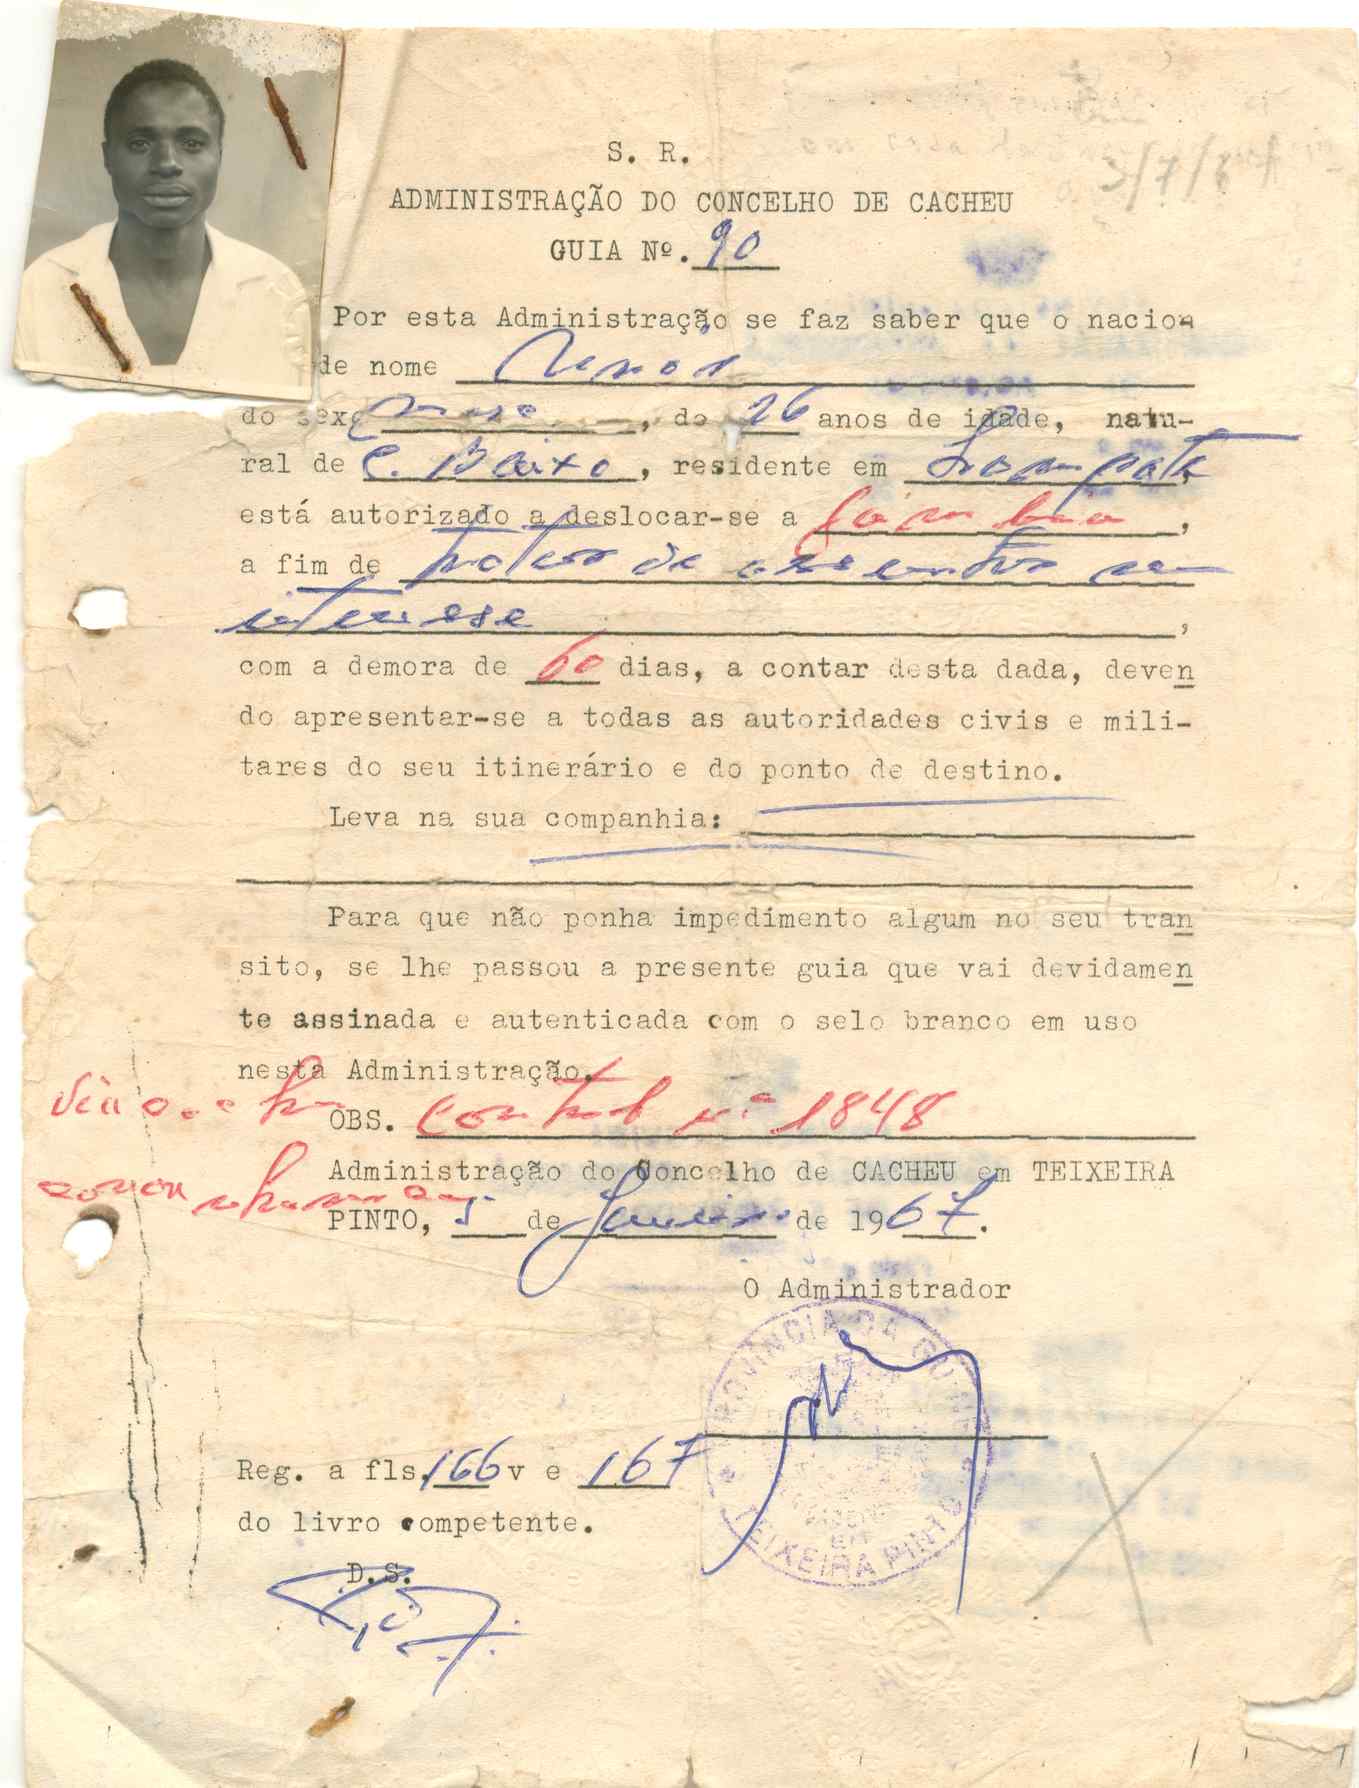 3/7/6
S. R.
ADMINISTRAÇÃO DO CONCELHO DE CACHEU
GUIA Nº. 90
Por esta Administração se faz saber que o nacion
de nome
do sexo masc, de 26 anos de idade, natu-
ral de C. Baixo, residente em
está autorizado a deslocar-se a Gambia,
a fim de tratar de assuntos seu
interesse,
com a demora de 60 dias, a contar desta dada, deven
do apresentar-se a todas as autoridades civis e mili-
tares do seu itinerário e do ponto de destino.
Leva na sua companhia:
Para que não ponha impedimento algum no seu tran
sito, se lhe passou a presente guia que vai devidamen
te assinada e autenticada com o selo branco em uso
nesta Administração.
OBS. Control nº 1848
Administração do Concelho de CACHEU em TEIXEIRA
PINTO, 5 de Janeiro de 1967.
O Administrador
PROVÍNCIA DA GUINÉ
TEIXEIRA PINTO
Reg. a fls. 166 v e 167
do livro competente.
D.S.